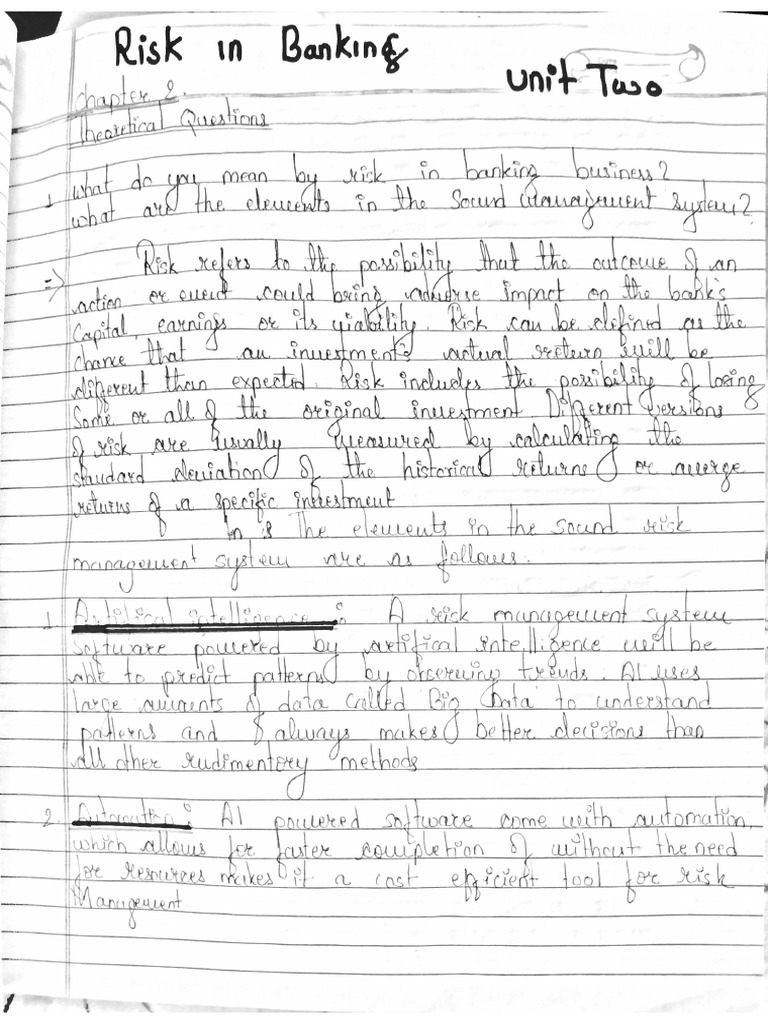 Risk in Banking
Unit Two
Chapter 2.
Theoretical Questions
1 What do you mean by risk in banking business?
What are the elements in the Sound Management System?
=> Risk refers to the possibility that the outcome of an
action or event could bring adverse impact on the bank's
Capital, earnings or its viability. Risk can be defined as the
chance that an investment's actual return will be
different than expected. Risk includes the possibility of losing
Some or all of the original investment Different versions
of risk are usually measured by calculating the
standard deviation of the historical returns or averge
returns of a specific investment
The elements in the sound risk
management system are as follows:
1. Artifical intelligence: A risk management system
software powered by artifical intelligence will be
able to predict patterns by observing trends. AI uses
large amounts of data called 'Big Data' to understand
patterns and always makes better decisions than
all other rudimentory methods
2. Automation: AI powered software come with automation,
which allows for faster completion of without the need
for resources makes it a cost efficient tool for risk
Management